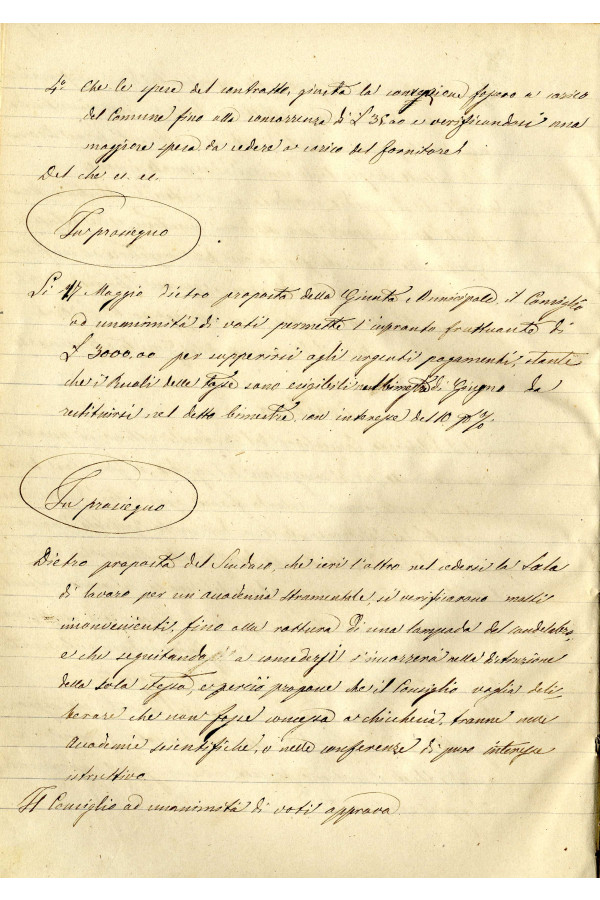 4.° Che le spese del contratto, giusta la convenzione fossero a carico
del Comune fino alla concorrenza di £ 35.00 e verificandosi una
maggiore spesa da cedere a carico del fornitore.
Del che ec. ec.
In prosieguo
Li 17 Maggio dietro proposta della Giunta Municipale il Consiglio
ad unanimità di voti permette l'impronto fruttuante di
£ 3000.00 per supperirsi agli urgenti pagamenti, stante
che i Ruoli delle tasse sono esigibili nel bimestre di Giugno da
restituirsi nel detto bimestre con interesse del 10 p %
In prosieguo
Dietro proposta del Sindaco, che ieri l'altro nel cedersi la Sala
di lavoro per un'accademia strumentale, si verificarono molti
inconvenienti, fino alla rottura di una lampada del candelabro,
e che seguitando a concedersi s'incorrerà nella distruzione
della sala stessa, e perciò propone che il Consiglio voglia deli-
berare che non fosse concessa a chicchesia, tranne nelle
Accademie scientifiche, o nelle conferenze di puro interesse
istruttivo.
Il Consiglio ad unanimità di voti approva.